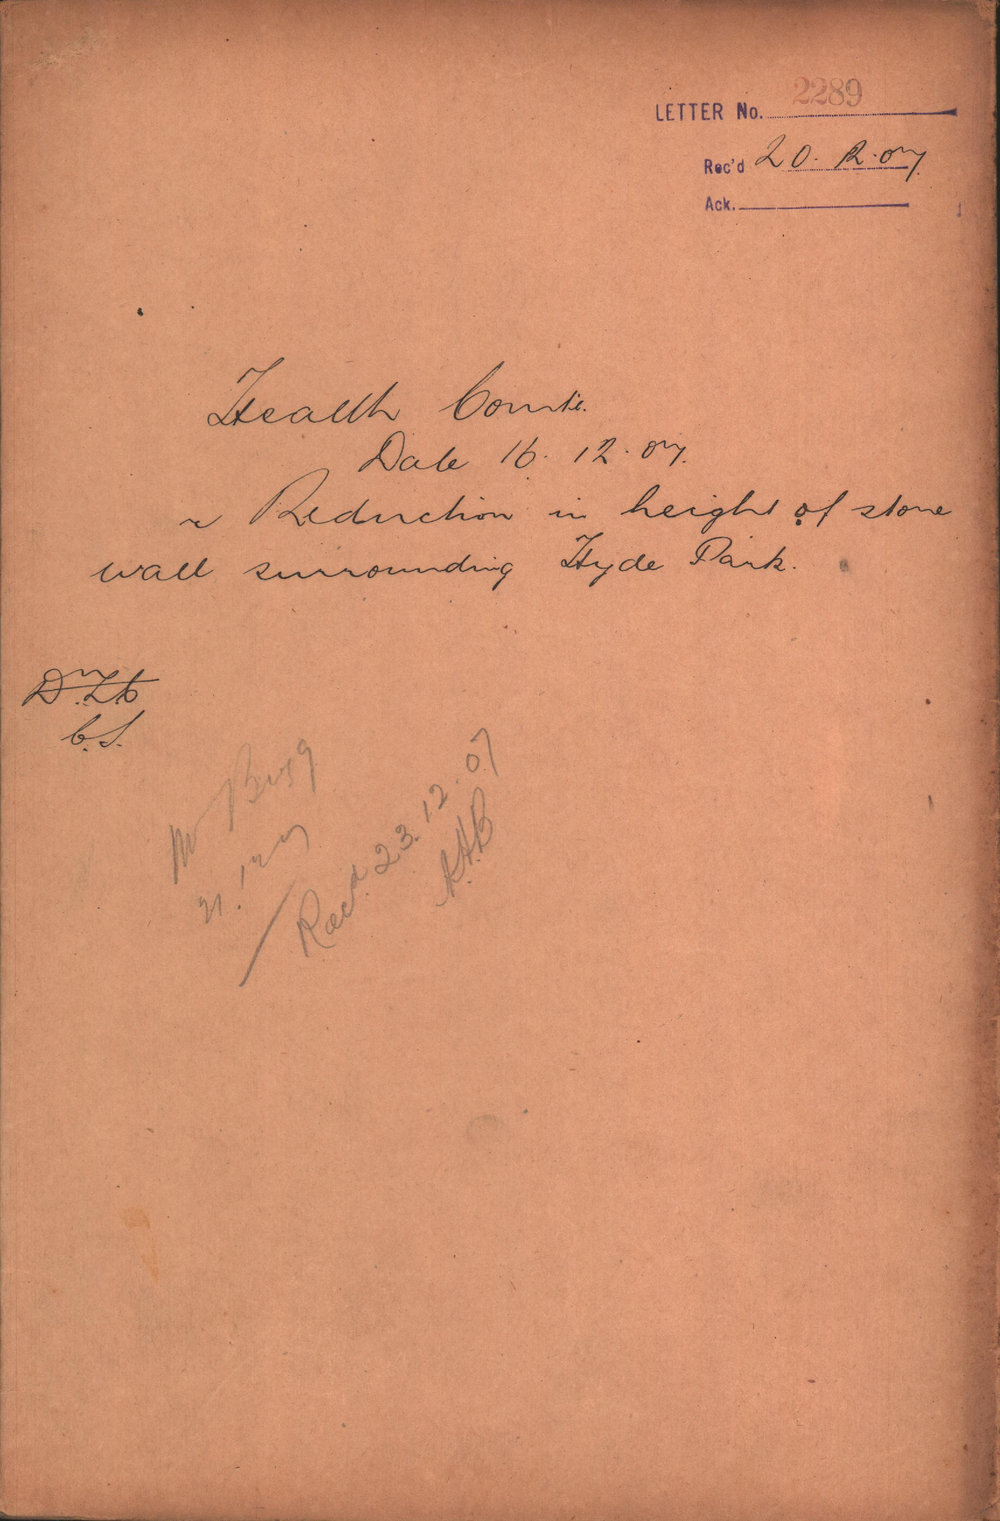 LETTER No. 2289
Rec'd 20. 12. 07.
Ack.
Health Comtte.
Date 16. 12. 07.
r Reduction in height of stone
wall surrounding Hyde Park.
C.S.
Mr Bragg
Recd. 23.12.07
A.H.B